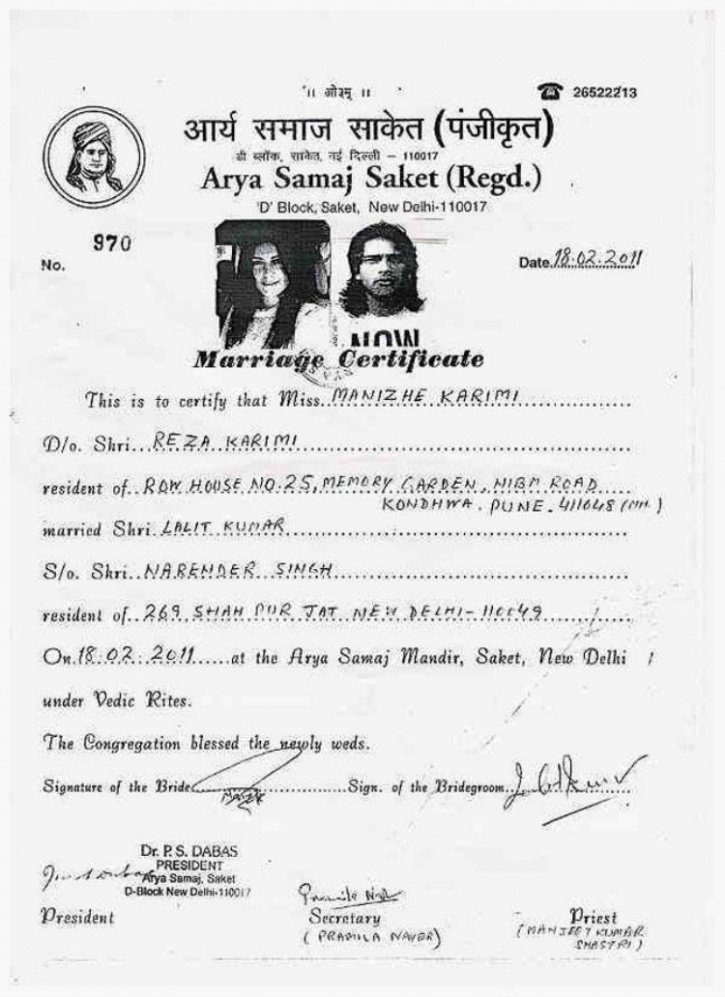 ।। ओ३म् ।।
☎ 26522213
आर्य समाज साकेत (पंजीकृत)
डी ब्लॉक, साकेत, नई दिल्ली – 110017
Arya Samaj Saket (Regd.)
'D' Block, Saket, New Delhi-110017
970
No.
Date 18.02.2011
NOW
Marriage Certificate
This is to certify that Miss. MANIZHE KARIMI
D/o. Shri. REZA KARIMI
resident of ROW HOUSE NO. 25, MEMORY GARDEN, NIBM ROAD
KONDHWA. PUNE. 411048 (MH.)
married Shri LALIT KUMAR
S/o. Shri. NARENDER SINGH
resident of 269 SHAH PUR JAT NEW DELHI-110049
On 18.02.2011 at the Arya Samaj Mandir, Saket, New Delhi
under Vedic Rites.
The Congregation blessed the newly weds.
Signature of the Bride Sign. of the Bridegroom
Dr. P.S. DABAS
PRESIDENT
Arya Samaj, Saket
D-Block New Delhi-110017
President Secretary Priest
(PRAMILA NAYAR) (MANJEET KUMAR
SHASTRI)